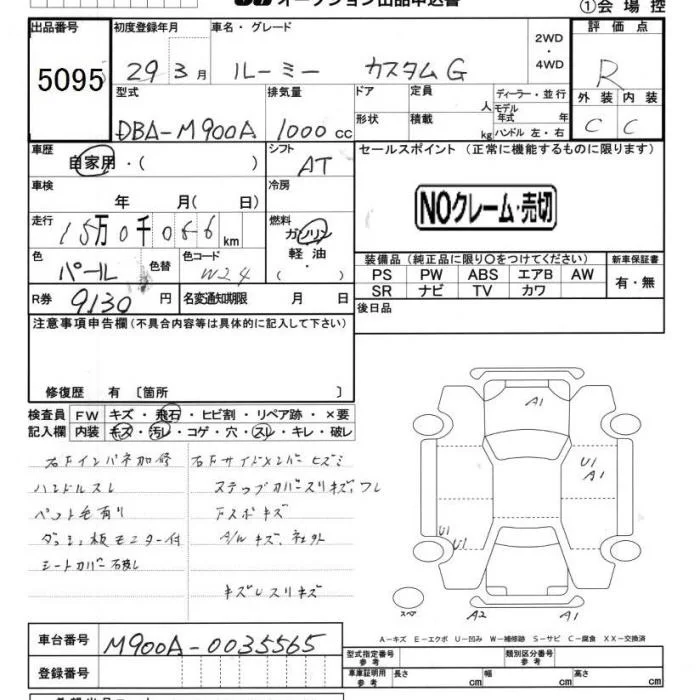 オークション出品申込書
①会場控
出品番号
5095
初度登録年月
29 3月
車名・グレード
ルーミー カスタムG
2WD
・
4WD
評価点
R
外装 内装
C C
型式
DBA-M900A
排気量
1000cc
ドア
形状
定員
人
積載
kg
ディーラー・並行
モデル年式 年
ハンドル 左・右
車歴
自家用・( )
シフト
AT
セールスポイント (正常に機能するものに限ります)
NOクレーム・売切
車検
年 月( 日)
冷房
走行
15万0千066km
燃料
ガソリン
軽油
・
( )
色
パール
色替
色コード
W24
装備品(純正品に限り○をつけてください)
PS PW ABS エアB AW
SR ナビ TV カワ
新車保証書
有・無
R券
9130円
名変通知期限 月 日
後日品
注意事項申告欄(不具合内容等は具体的に記入して下さい)
修復歴 有 〔箇所 〕
検査員記入欄
FW キズ・飛石・ヒビ割・リペア跡・×要
内装 キズ・汚レ・コゲ・穴・スレ・キレ・破レ
右Fインパネ加修 右Fサイドメンバーヒズミ
ハンドルスレ ステップカバースリキズ、ワレ
ペット毛有り Fスポキズ
ダッシュ板モニター付 A/Wキズ、社外
シートカバー破レ
キズUスリキズ
A1
U1
A1
U1
U1
スペア
A2 A1
A-キズ E-エクボ U-凹み W-補修跡 S-サビ C-腐食 XX-交換済
車台番号
M900A-0035565
登録番号
型式指定番号
参考
類別区分番号
参考
車庫証明用
参考
長さ cm 幅 cm 高さ cm